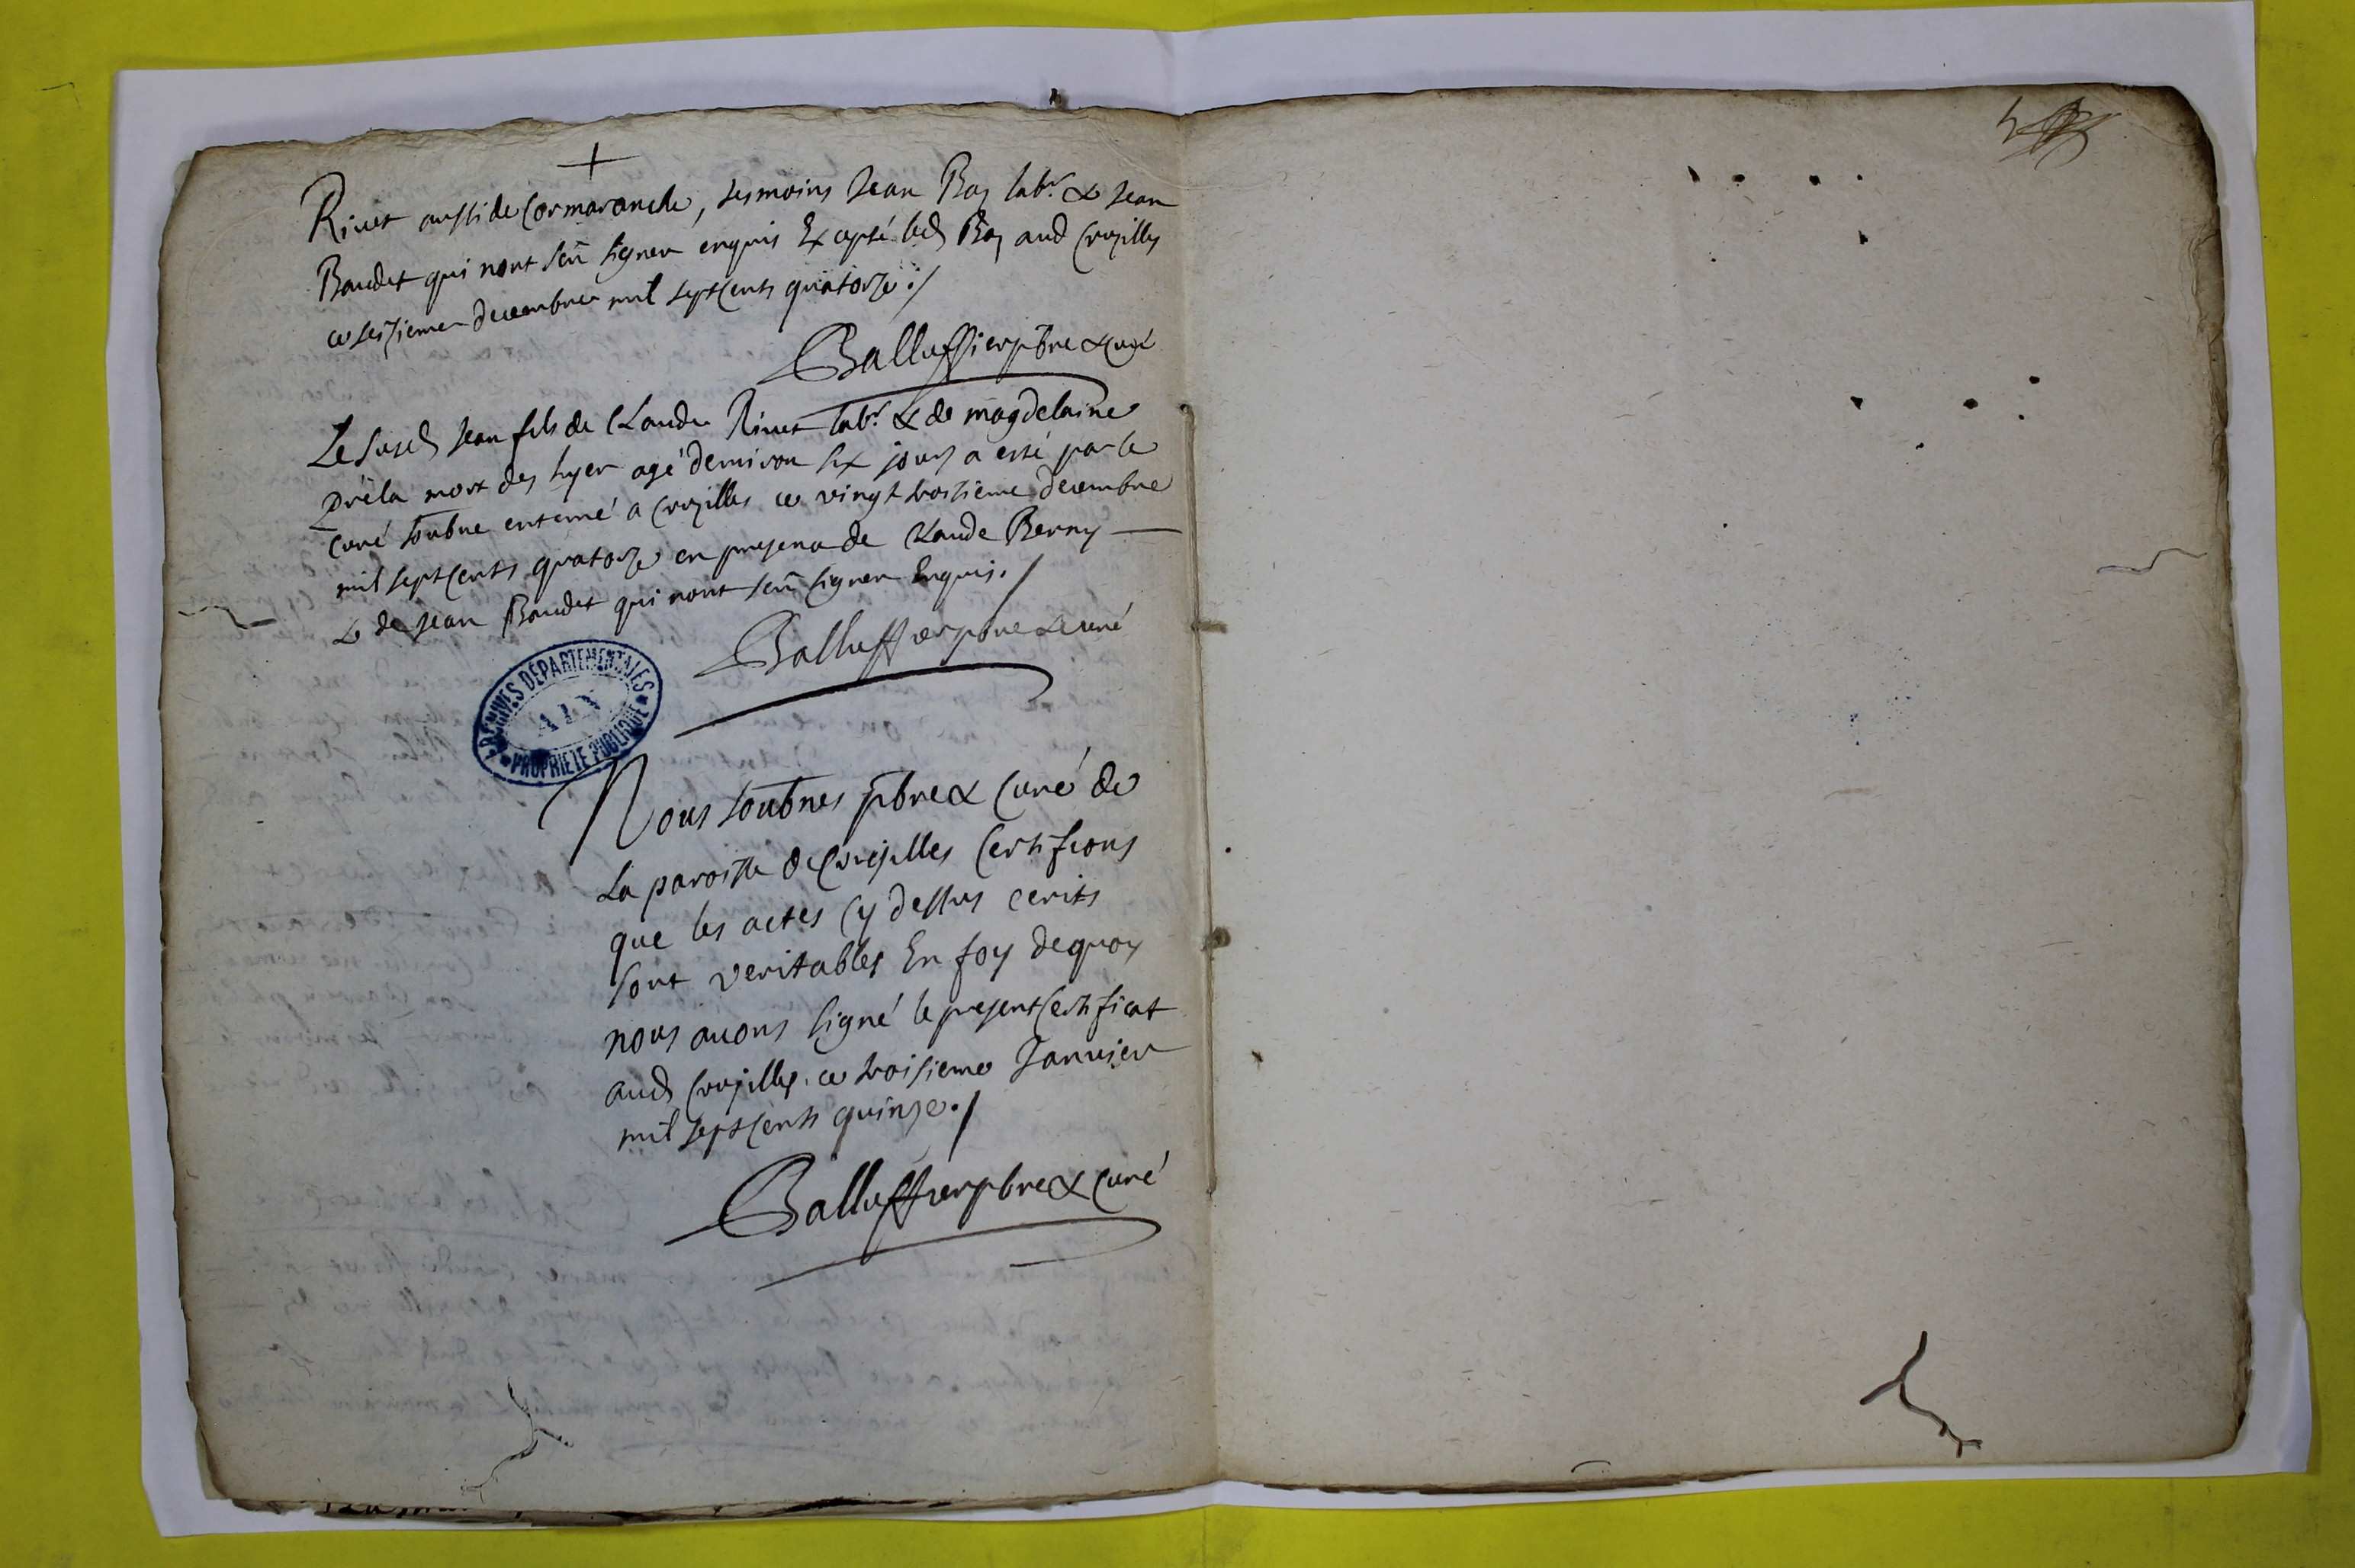 +
Rivet aussi de Cormaranche, tesmoins Jean Roy labr & Jean
Baudet qui n'ont sceu signer enquis Excepté led Roy aud Crozilles
ce seizieme decembre mil sept cents quatorze ./
Balluffier pbre & curé
Le susd Jean fils de Claude Rivet labr & de magdelaine
mort des hyer agé d'environ six jours a esté par le
curé soubne enterré a Crozilles ce vingt troisieme decembre
mil sept cents quatorze en presence de Claude Berny
& de Jean Baudet qui n'ont sceu signer Enquis ./
Balluffier pbre & curé
ARCHIVES DÉPARTEMENTALES
AIN
PROPRIÉTÉ PUBLIQUE
Nous soubnes pbre & Curé de
La paroisse de Crozilles Certifions
que les actes cy dessus ecrits
sont veritables En foy de quoy
nous avons signé le present Certificat
aud Crozilles ce troisieme Janvier
mil sept cents quinze ./
Balluffier pbre & Curé